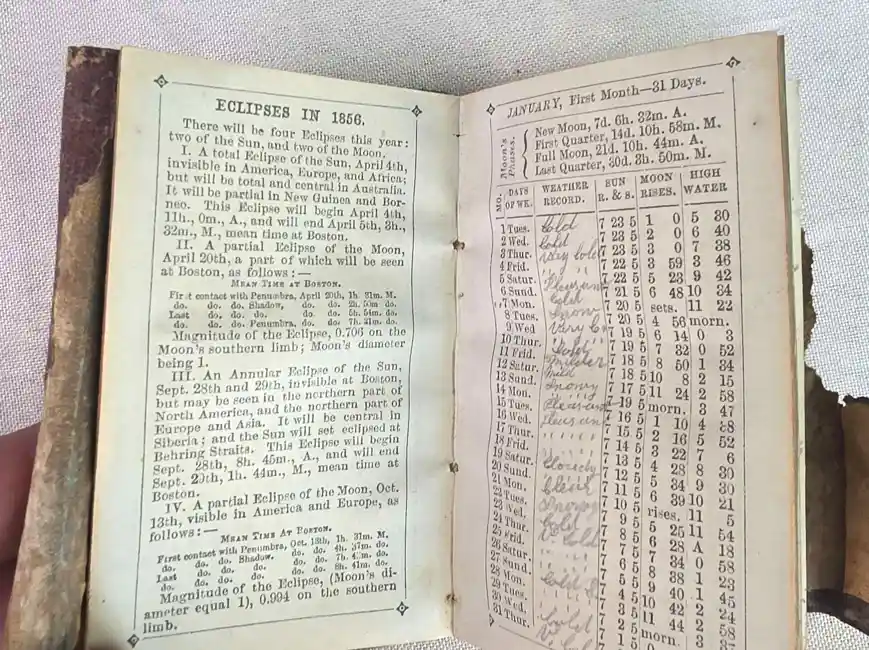 ECLIPSES IN 1856.
There will be four Eclipses this year:
two of the Sun, and two of the Moon.
I. A total Eclipse of the Sun, April 4th,
invisible in America, Europe, and Africa;
but will be total and central in Australia.
It will be partial in New Guinea and Bor-
neo. This Eclipse will begin April 4th,
11h., 0m., A., and will end April 5th, 3h.,
32m., M., mean time at Boston.
II. A partial Eclipse of the Moon,
April 20th, a part of which will be seen
at Boston, as follows:—
MEAN TIME AT BOSTON.
First contact with Penumbra, April 20th, 1h. 31m. M.
do. do. do. Shadow, do. do. 2h. 50m do.
Last do. do. do. do. do. 5h. 54m. do.
do. do. do. Penumbra, do. do. 7h. 21m. do.
Magnitude of the Eclipse, 0.706 on the
Moon's southern limb; Moon's diameter
being 1.
III. An Annular Eclipse of the Sun,
Sept. 28th and 29th, invisible at Boston,
but may be seen in the northern part of
North America, and the northern part of
Europe and Asia. It will be central in
Siberia; and the Sun will set eclipsed at
Behring Straits. This Eclipse will begin
Sept. 28th, 8h. 45m., A., and will end
Sept. 29th, 1h. 44m., M., mean time at
Boston.
IV. A partial Eclipse of the Moon, Oct.
13th, visible in America and Europe, as
follows:—
MEAN TIME AT BOSTON.
First contact with Penumbra, Oct. 13th, 1h. 31m. M.
do. do. do. Shadow. do. do. 4h. 37m. do.
Last do. do. do. do. do. 7h. do.
do. do. do. do. do. 8h. 41m. do.
Magnitude of the Eclipse, (Moon's di-
ameter equal 1), 0.994 on the southern
limb.
JANUARY, First Month—31 Days.
Moon's Phases.
New Moon, 7d. 6h. 32m. A.
First Quarter, 14d. 10h. 58m. M.
Full Moon, 21d. 10h. 44m. A.
Last Quarter, 30d. 3h. 50m. M.
MO. DAYS OF WK. WEATHER RECORD. SUN R. & S. MOON RISES. HIGH WATER
1 Tues. Cold 7 23 5 1 0 5 30
2 Wed. Cold 7 23 5 2 0 6 40
3 Thur. Very Cold 7 23 5 3 0 7 38
4 Frid. " " 7 22 5 3 59 3 46
5 Satur. Pleasant 7 22 5 5 23 9 42
6 Sund. Cold 7 21 5 6 48 10 34
7 Mon. Snow 7 20 5 sets. 11 22
8 Tues. Very C 7 20 5 4 56 morn.
9 Wed " " 7 19 5 6 14 0 3
10 Thur. Cold 7 19 5 7 32 0 52
11 Frid. 7 18 5 8 50 1 34
12 Satur. Mild 7 18 5 10 8 2 15
13 Sund. Snowy 7 17 5 11 24 2 58
14 Mon. Pleasant 7 19 5 morn. 3 47
15 Tues. Pleasant 7 16 5 1 10 4 88
16 Wed. " " 7 15 5 2 16 5 52
17 Thur. " " 7 14 5 3 22 7 6
18 Frid. 7 13 5 4 28 8 30
19 Satur. Cloudy 7 12 5 5 34 9 30
20 Sund. Clear 7 11 5 6 39 10 21
21 Mon. 7 10 5 rises. 11 5
22 Tues. Snowy 7 9 5 5 25 11 54
23 Wed. Cold 7 8 5 6 28 A 18
24 Thur. V Cold 7 7 5 7 34 0 58
25 Frid. 7 6 5 8 38 1 23
26 Satur. 7 5 5 9 40 1 45
27 Sund. Cold 7 4 5 10 42 2 24
28 Mon. 7 3 5 11 44 2 58
29 Tues. 7 2 5 morn. 3
30 Wed. Cold 7 1 5 0
31 Thur.